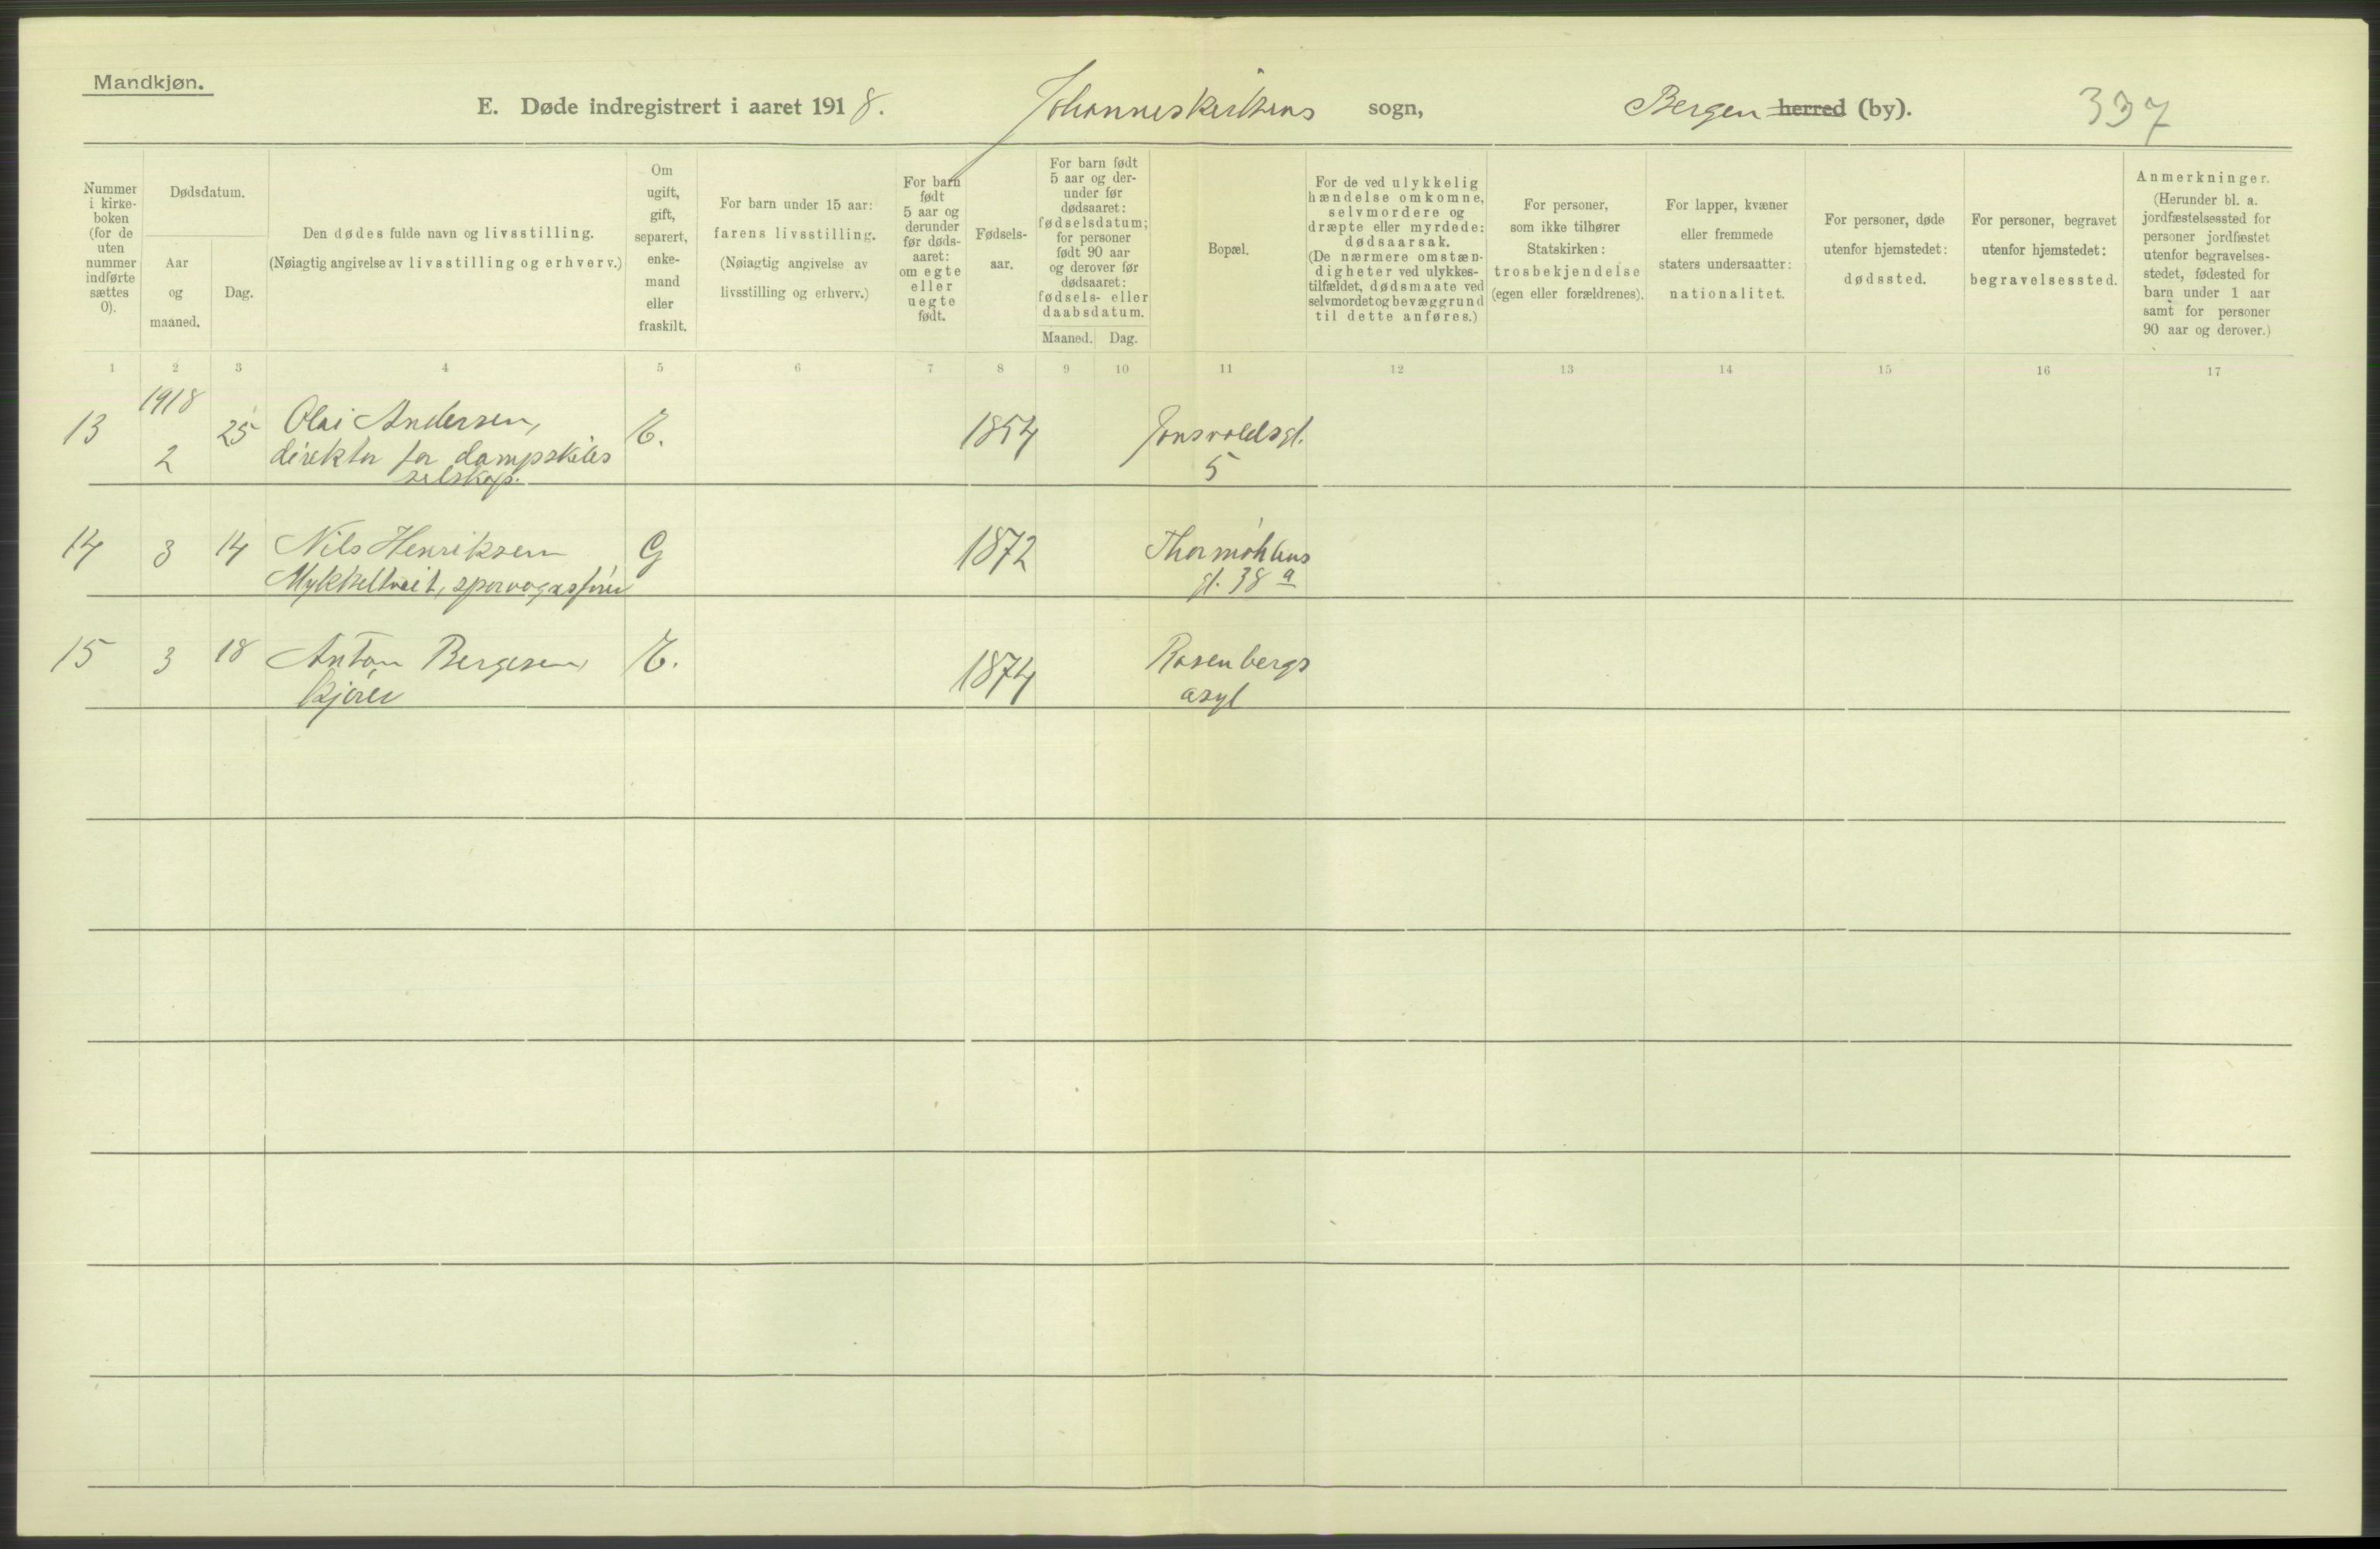 Mandkjøn.
E. Døde indregistrert i aaret 1918. Johanneskirkens sogn, Bergen herred (by). 337
Nummer
i kirke-
boken
(for de
uten
nummer
indførte
sættes
0).
Dødsdatum.
Aar
og
maaned.
Dag.
Den dødes fulde navn og livsstilling.
(Nøiagtig angivelse av livsstilling og erhverv.)
Om
ugift,
gift,
separert,
enke-
mand
eller
fraskilt.
For barn under 15 aar:
farens livsstilling.
(Nøiagtig angivelse av
livsstilling og erhverv.)
For barn
født
5 aar og
derunder
før døds-
aaret:
om egte
eller
uegte
født.
Fødsels-
aar.
For barn født
5 aar og der-
under før
dødsaaret:
fødselsdatum;
for personer
født 90 aar
og derover før
dødsaaret:
fødsels- eller
daabsdatum.
Maaned. Dag.
Bopæl.
For de ved ulykkelig
hændelse omkomne,
selvmordere og
dræpte eller myrdede:
dødsaarsak.
(De nærmere omstæn-
digheter ved ulykkes-
tilfældet, dødsmaate ved
selvmordet og bevæggrund
til dette anføres.)
For personer,
som ikke tilhører
Statskirken:
trosbekjendelse
(egen eller forældrenes).
For lapper, kvæner
eller fremmede
staters undersaatter:
nationalitet.
For personer, døde
utenfor hjemstedet:
dødssted.
For personer, begravet
utenfor hjemstedet:
begravelsessted.
Anmerkninger.
(Herunder bl. a.
jordfæstelsessted for
personer jordfæstet
utenfor begravelses-
stedet, fødested for
barn under 1 aar
samt for personer
90 aar og derover.)
1 2 3 4 5 6 7 8 9 10 11 12 13 14 15 16 17
1918
13 2 25 Olai Andersen, E. 1854 Jonsvoldsgt.
direktør for dampskibs 5
selskap.
14 3 14 Nils Henriksen G 1872 Thormøhlens
Mykkeltveit, sporvognsfører gt. 38 a
15 3 18 Anton Bergesen, E. 1874 Rosenbergs
kjører asyl